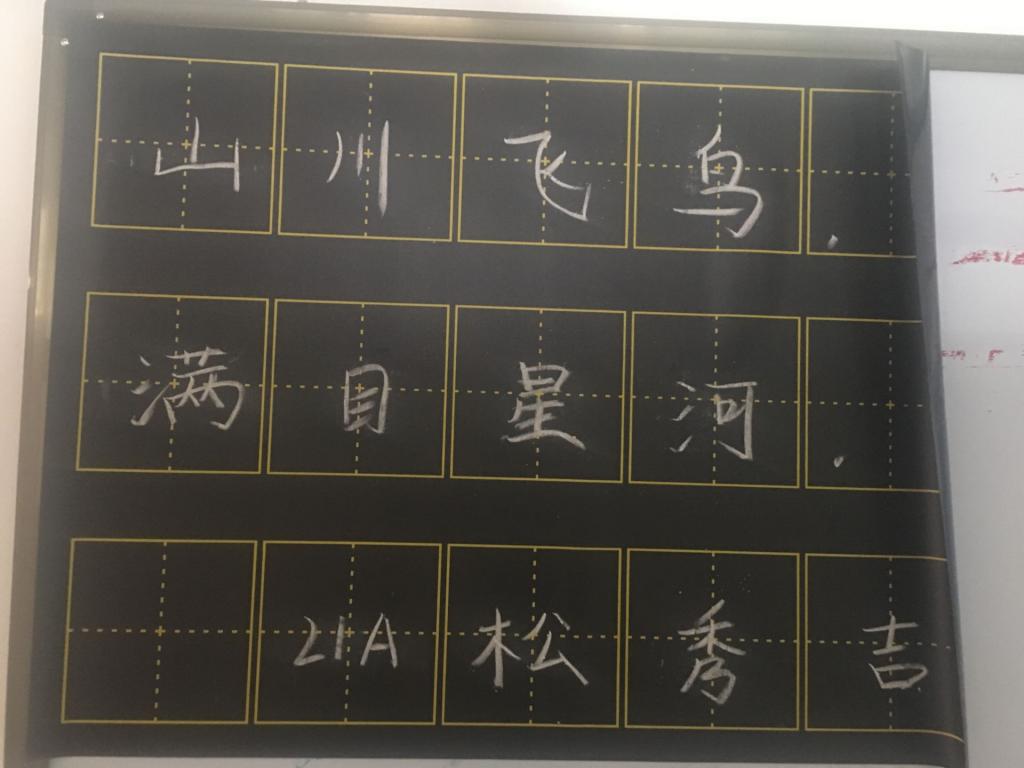 山川飞鸟.
满目星河.
21A松秀吉